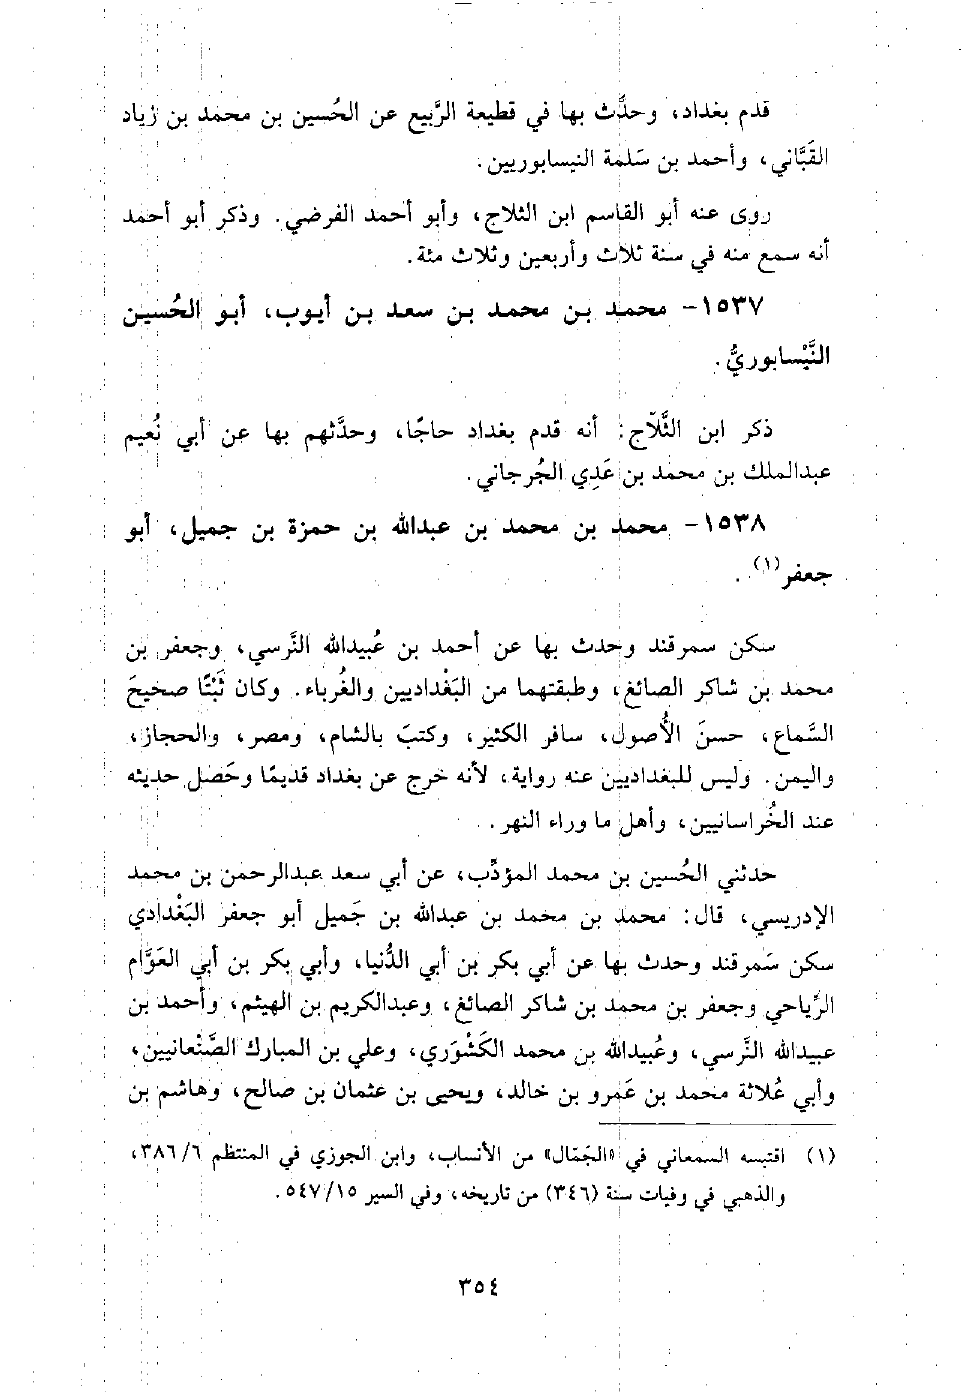 قدم بغداد، وحدَّث بها في قطيعة الرَّبيع عن الحُسين بن محمد بن زياد
القَبَّاني، وأحمد بن سَلَمة النيسابوريين.
روى عنه أبو القاسم ابن الثلاج، وأبو أحمد الفرضي. وذكر أبو أحمد
أنه سمع منه في سنة ثلاث وأربعين وثلاث مئة.
١٥٣٧- محمد بن محمد بن سعد بن أيوب، أبو الحُسين
النَّيْسابوريُّ.
ذكر ابن الثَّلّاج: أنه قدم بغداد حاجًا، وحدَّثهم بها عن أبي نُعيم
عبدالملك بن محمد بن عَدِي الجُرجاني.
١٥٣٨- محمد بن محمد بن عبدالله بن حمزة بن جميل، أبو
جعفر(١).
سكن سمرقند وحدث بها عن أحمد بن عُبيدالله النَّرسي، وجعفر بن
محمد بن شاكر الصائغ، وطبقتهما من البَغْداديين والغُرباء. وكان ثَبْتًا صحيحَ
السَّماع، حسنَ الأُصول، سافر الكثير، وكتبَ بالشام، ومصر، والحجاز،
واليمن. وليس للبغداديين عنه رواية، لأنه خرج عن بغداد قديمًا وحَصَل حديثه
عند الخُراسانيين، وأهل ما وراء النهر.
حدثني الحُسين بن محمد المؤدِّب، عن أبي سعد عبدالرحمن بن محمد
الإدريسي، قال: محمد بن محمد بن عبدالله بن جَميل أبو جعفر البَغْدادي
سكن سَمرقند وحدث بها عن أبي بكر بن أبي الدُّنيا، وأبي بكر بن أبي العَوَّام
الرِّياحي وجعفر بن محمد بن شاكر الصائغ، وعبدالكريم بن الهيثم، وأحمد بن
عبيدالله النَّرسي، وعُبيدالله بن محمد الكَشْوَري، وعلي بن المبارك الصَّنْعانيين،
وأبي عُلاثة محمد بن عَمرو بن خالد، ويحيى بن عثمان بن صالح، وهاشم بن
(١) اقتبسه السمعاني في «الجَمّال» من الأنساب، وابن الجوزي في المنتظم ٦/ ٣٨٦،
والذهبي في وفيات سنة (٣٤٦) من تاريخه، وفي السير ١٥/ ٥٤٧.
٣٥٤